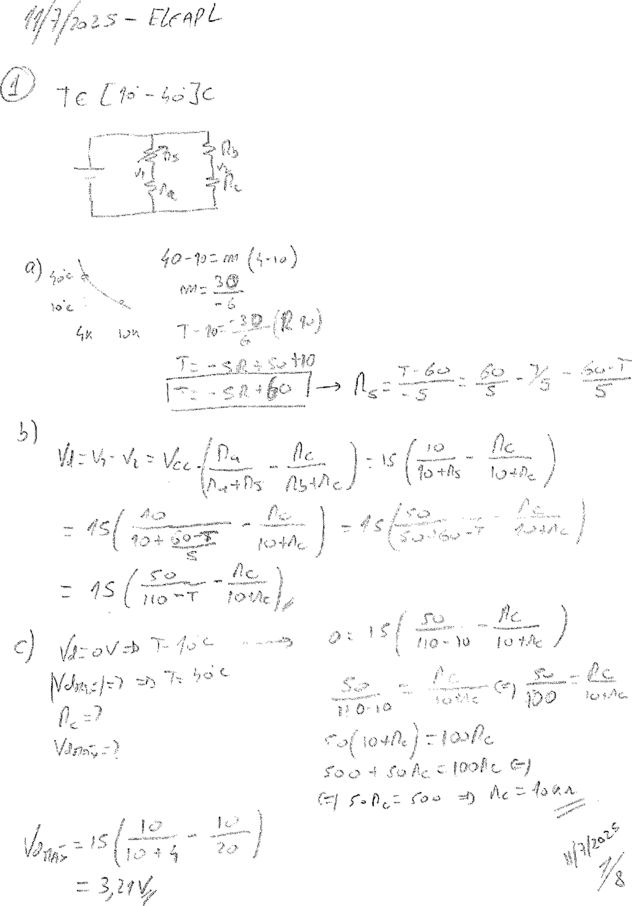 11/7/2025 - ELEAPL
1 T ∈ [10° - 40°]C
Rs Rb
V1 V2
Ra Rc
a) 40°C
10°C
4k 10k
40-10 = m (4-10)
m = 30/-6
T - 10 = -30/6 (R-10)
T = -5R + 50 + 10
T = -5R + 60 → Rs = T-60/-5 = 60/5 - T/5 = 60-T/5
b)
Vd = V1 - V2 = Vcc (Ra/Ra+Rs - Rc/Rb+Rc) = 15 (10/10+Rs - Rc/10+Rc)
= 15 (10/10+60-T/5 - Rc/10+Rc) = 15 (50/50+60-T - Rc/10+Rc)
= 15 (50/110-T - Rc/10+Rc)
c) Vd = 0V ⇒ T = 10°C → 0 = 15 (50/110-10 - Rc/10+Rc)
|Vdmax| = ? ⇒ T = 40°C
Rc = ?
Vdmax = ?
50/110-10 = Rc/10+Rc ⇔ 50/100 = Rc/10+Rc
50(10+Rc) = 100Rc
500 + 50Rc = 100Rc ⇔
⇔ 50Rc = 500 ⇒ Rc = 10kΩ
VdMAX = 15 (10/10+4 - 10/20)
= 3,21V
11/7/2025
1/8